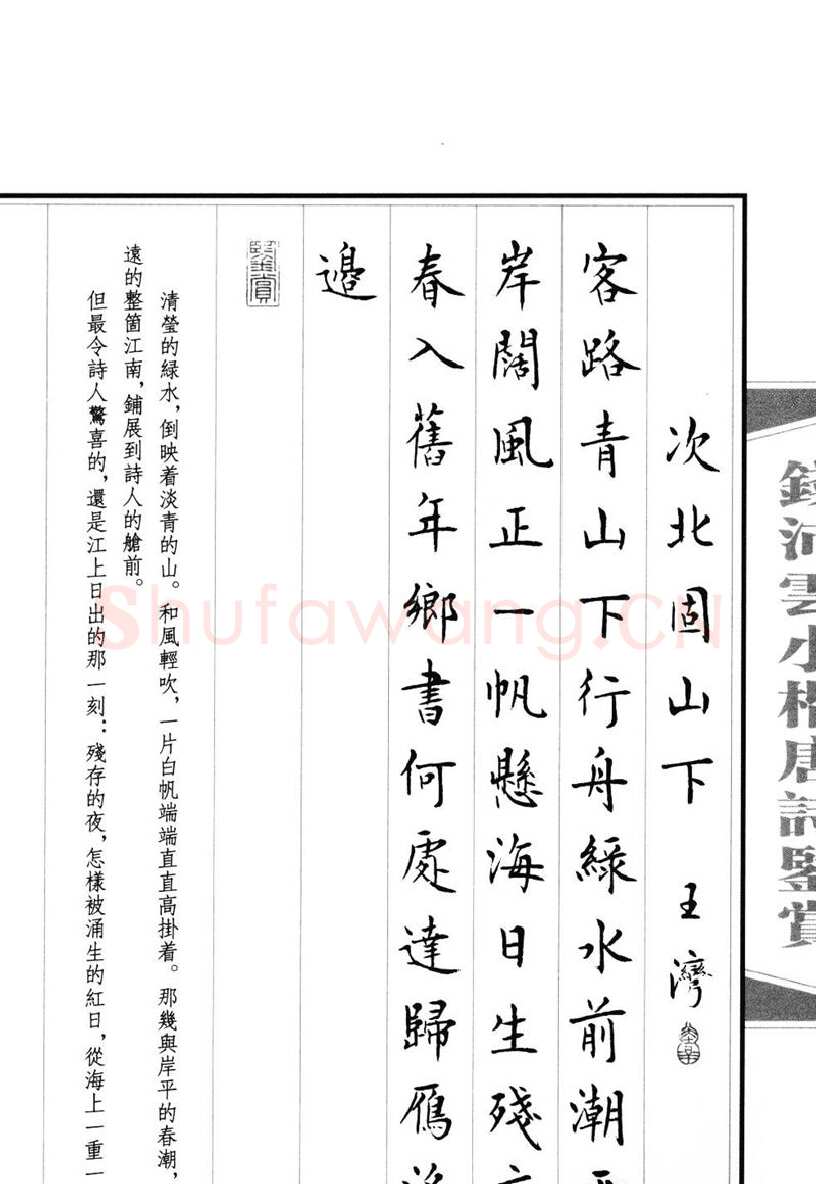 錢沛雲小楷唐詩鑒賞
次北固山下 王灣
客路青山下行舟綠水前潮平
岸闊風正一帆懸海日生殘夜
春入舊年鄉書何處達歸鴈洛
邉
鑒賞
清瑩的綠水，倒映着淡青的山。和風輕吹，一片白帆端端直直高掛着。那幾與岸平的春潮，
遠的整箇江南，鋪展到詩人的艙前。
但最令詩人驚喜的，還是江上日出的那一刻：殘存的夜，怎樣被涌生的紅日，從海上一重一
Shufawang.CN